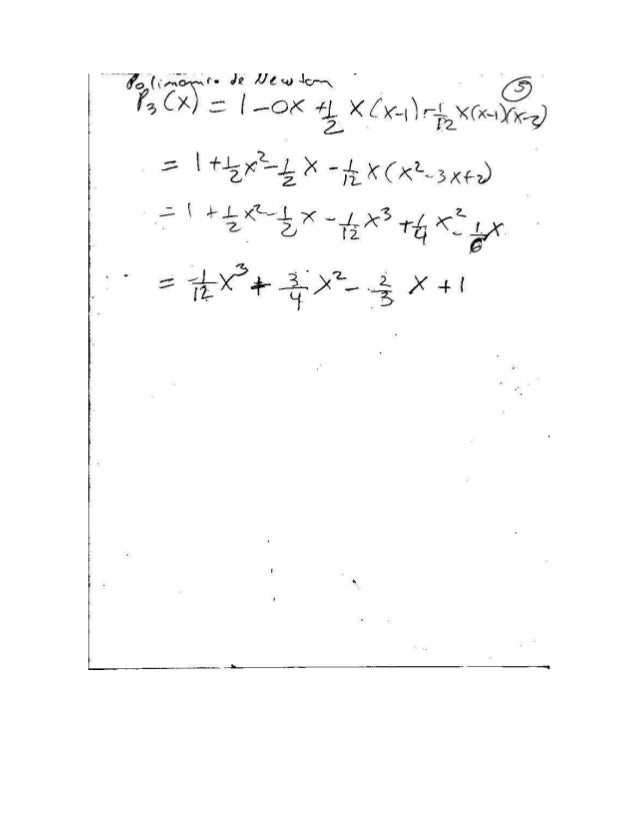 Polinomio de Newton
⑤
P₃(x) = 1 - 0x + 1/2 x(x-1) - 1/12 x(x-1)(x-2)
= 1 + 1/2 x² - 1/2 x - 1/12 x(x² - 3x + 2)
= 1 + 1/2 x² - 1/2 x - 1/12 x³ + 1/4 x² - 1/6 x
= -1/12 x³ + 3/4 x² - 2/3 x + 1